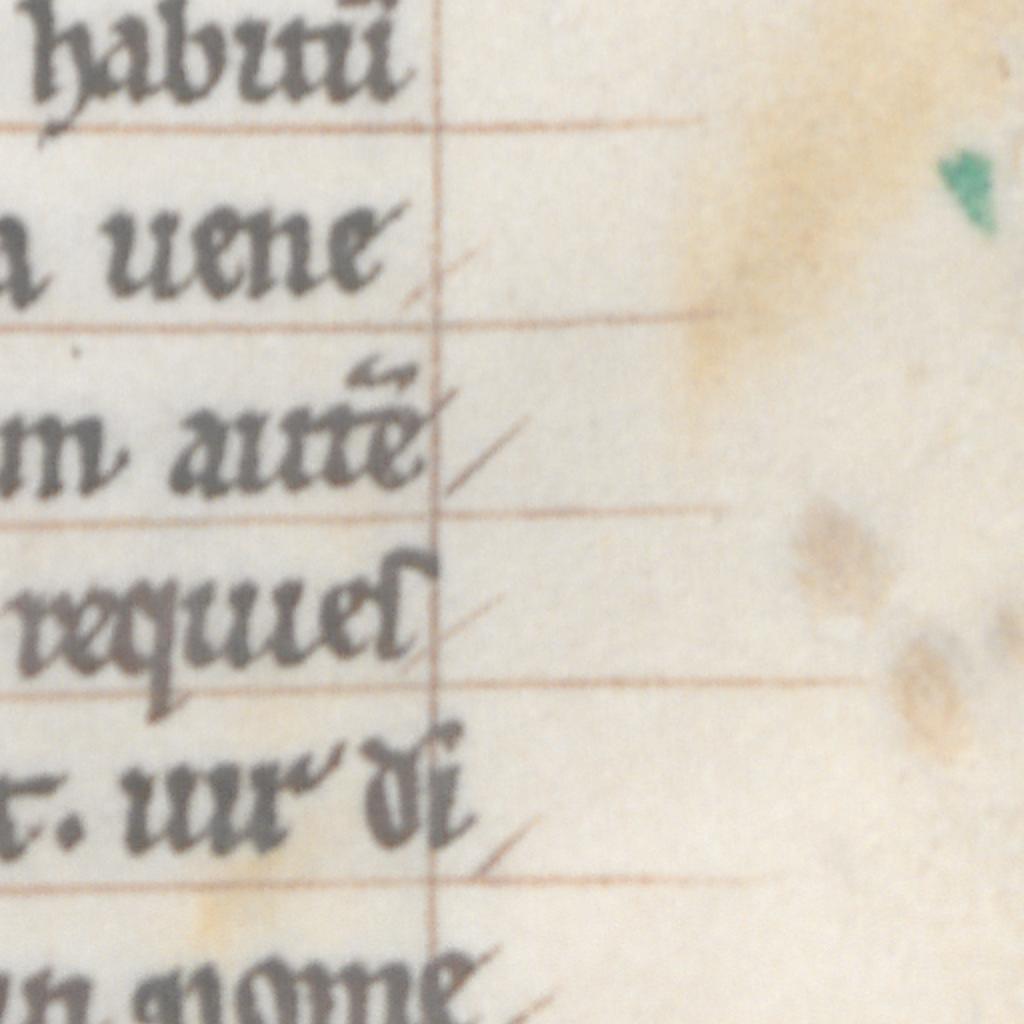 habitū
a uene
m autē
requieſ
t. uir di
in nome